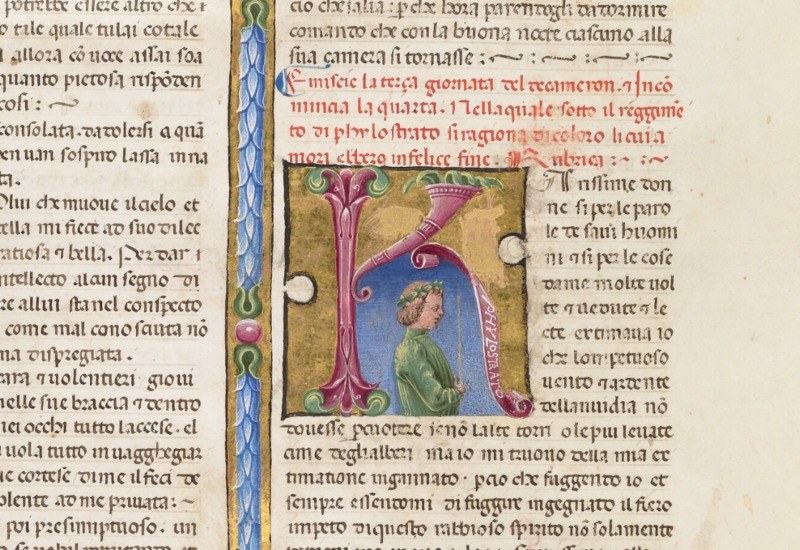 potrebbe essere altro che i
o tale quale tu lai cotale
allora cō uoce assai soa
quanto pietosa rispōden
cosi :
consolata . da tolersi a quā
en uan sospiro lassa in na
ta .
Olui che muoue il cielo et
tella mi fiece ad suo dilce
ratiosa ⁊ bella . Per dar i
ntellecto alcun segno di
re allui sta nel conspecto
come mal conosciuta nō
na dispregiata .
cara ⁊ uolentieri gioui
nelle sue braccia ⁊ dentro
iei occhi tutto laccese . el
uola tutto in uagghegiar
ue cortese di me il feci de
olente ad me priuata :
poi presimptuoso . un
cio che salia : p che hora parentogli da dormire
comando che con la buona nocte ciascuno alla
sua camera si tornasse :
Finiscie la terça giornata del decameron . ⁊ Incō
mincia la quarta . Nella quale sotto il reggime
to di phylostrato si ragiona di coloro li cui a
mori ebbero infelice fine . Rubrica :
PHYLOSTRATO
Arissime don
ne si per le paro
le de saui huomi
ni ⁊ si per le cose
da me molte uol
te ⁊ uedute ⁊ le
cte extimaua io
che lo impetuoso
uento ⁊ ardente
della nuidia nō
douesse percotere se nō lalte torri o le piu leuate
cime degli alberi ma io mi truouo della mia ex
timatione ingannato . p cio che fuggento io et
sempre essentomi di fuggire ingegnato il fiero
impeto di questo rabbioso spirito nō solamente